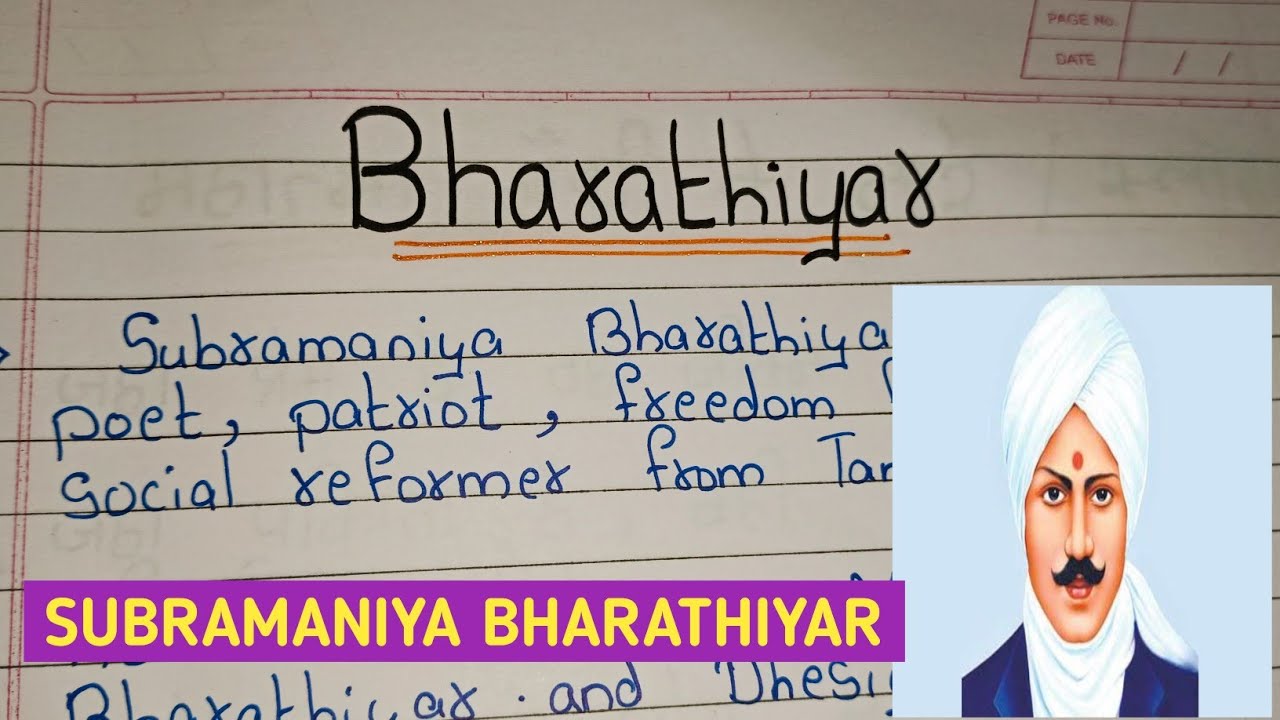 PAGE No.
DATE / /
Bharathiyar
Subramaniya Bharathiya
poet, patriot, freedom
Social reformer from
SUBRAMANIYA BHARATHIYAR
Bharathiyar . and